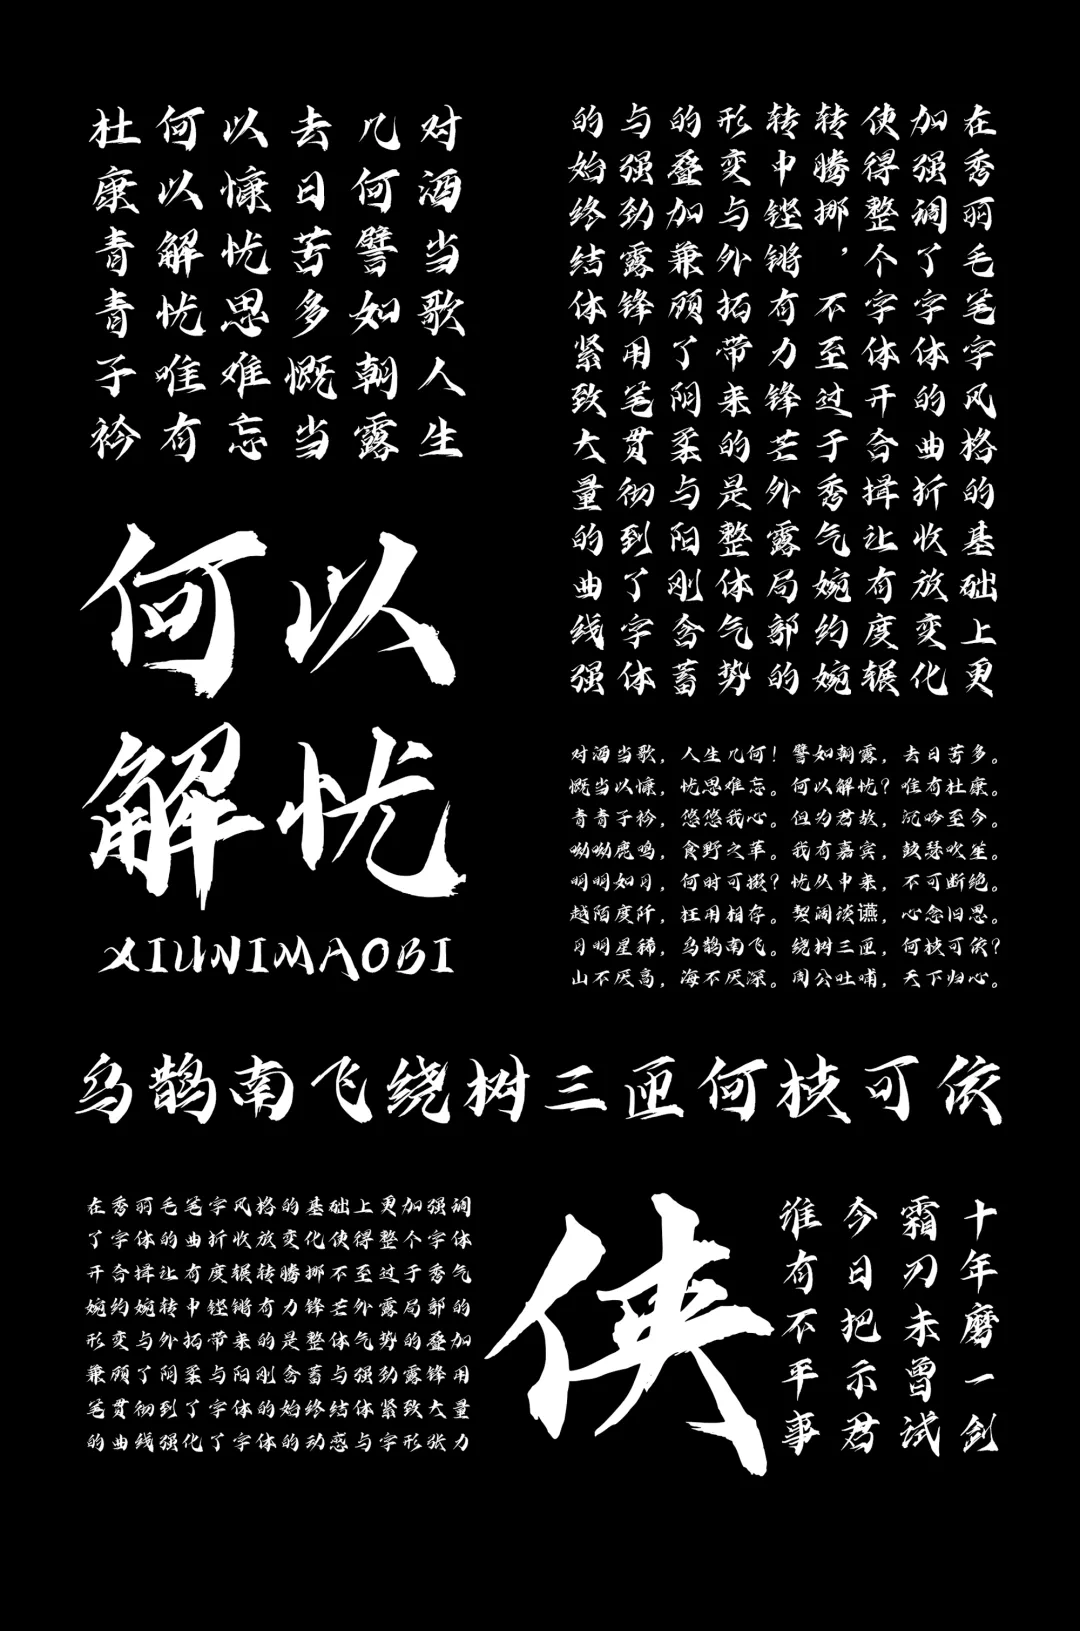 对酒当歌人生
几何譬如朝露
去日苦多慨当
以慷忧思难忘
何以解忧唯有
杜康青青子衿
在秀丽毛笔字风格的基础上更
加强调了字体的曲折收放变化
使得整个字体开合揖让有度辗
转腾挪，不至过于秀气婉约婉
转中铿锵有力锋芒外露局部的
形变与外拓带来的是整体气势
的叠加兼顾了阴柔与阳刚含蓄
与强劲露锋用笔贯彻到了字体
的始终结体紧致大量的曲线强
何以
解忧
XIUNIMAOBI
对酒当歌，人生几何！譬如朝露，去日苦多。
慨当以慷，忧思难忘。何以解忧？唯有杜康。
青青子衿，悠悠我心。但为君故，沉吟至今。
呦呦鹿鸣，食野之苹。我有嘉宾，鼓瑟吹笙。
明明如月，何时可掇？忧从中来，不可断绝。
越陌度阡，枉用相存。契阔谈䜩，心念旧恩。
月明星稀，乌鹊南飞。绕树三匝，何枝可依？
山不厌高，海不厌深。周公吐哺，天下归心。
乌鹊南飞绕树三匝何枝可依
在秀丽毛笔字风格的基础上更加强调
了字体的曲折收放变化使得整个字体
开合揖让有度辗转腾挪不至过于秀气
婉约婉转中铿锵有力锋芒外露局部的
形变与外拓带来的是整体气势的叠加
兼顾了阴柔与阳刚含蓄与强劲露锋用
笔贯彻到了字体的始终结体紧致大量
的曲线强化了字体的动感与字形张力
侠
十年磨一剑
霜刃未曾试
今日把示君
谁有不平事